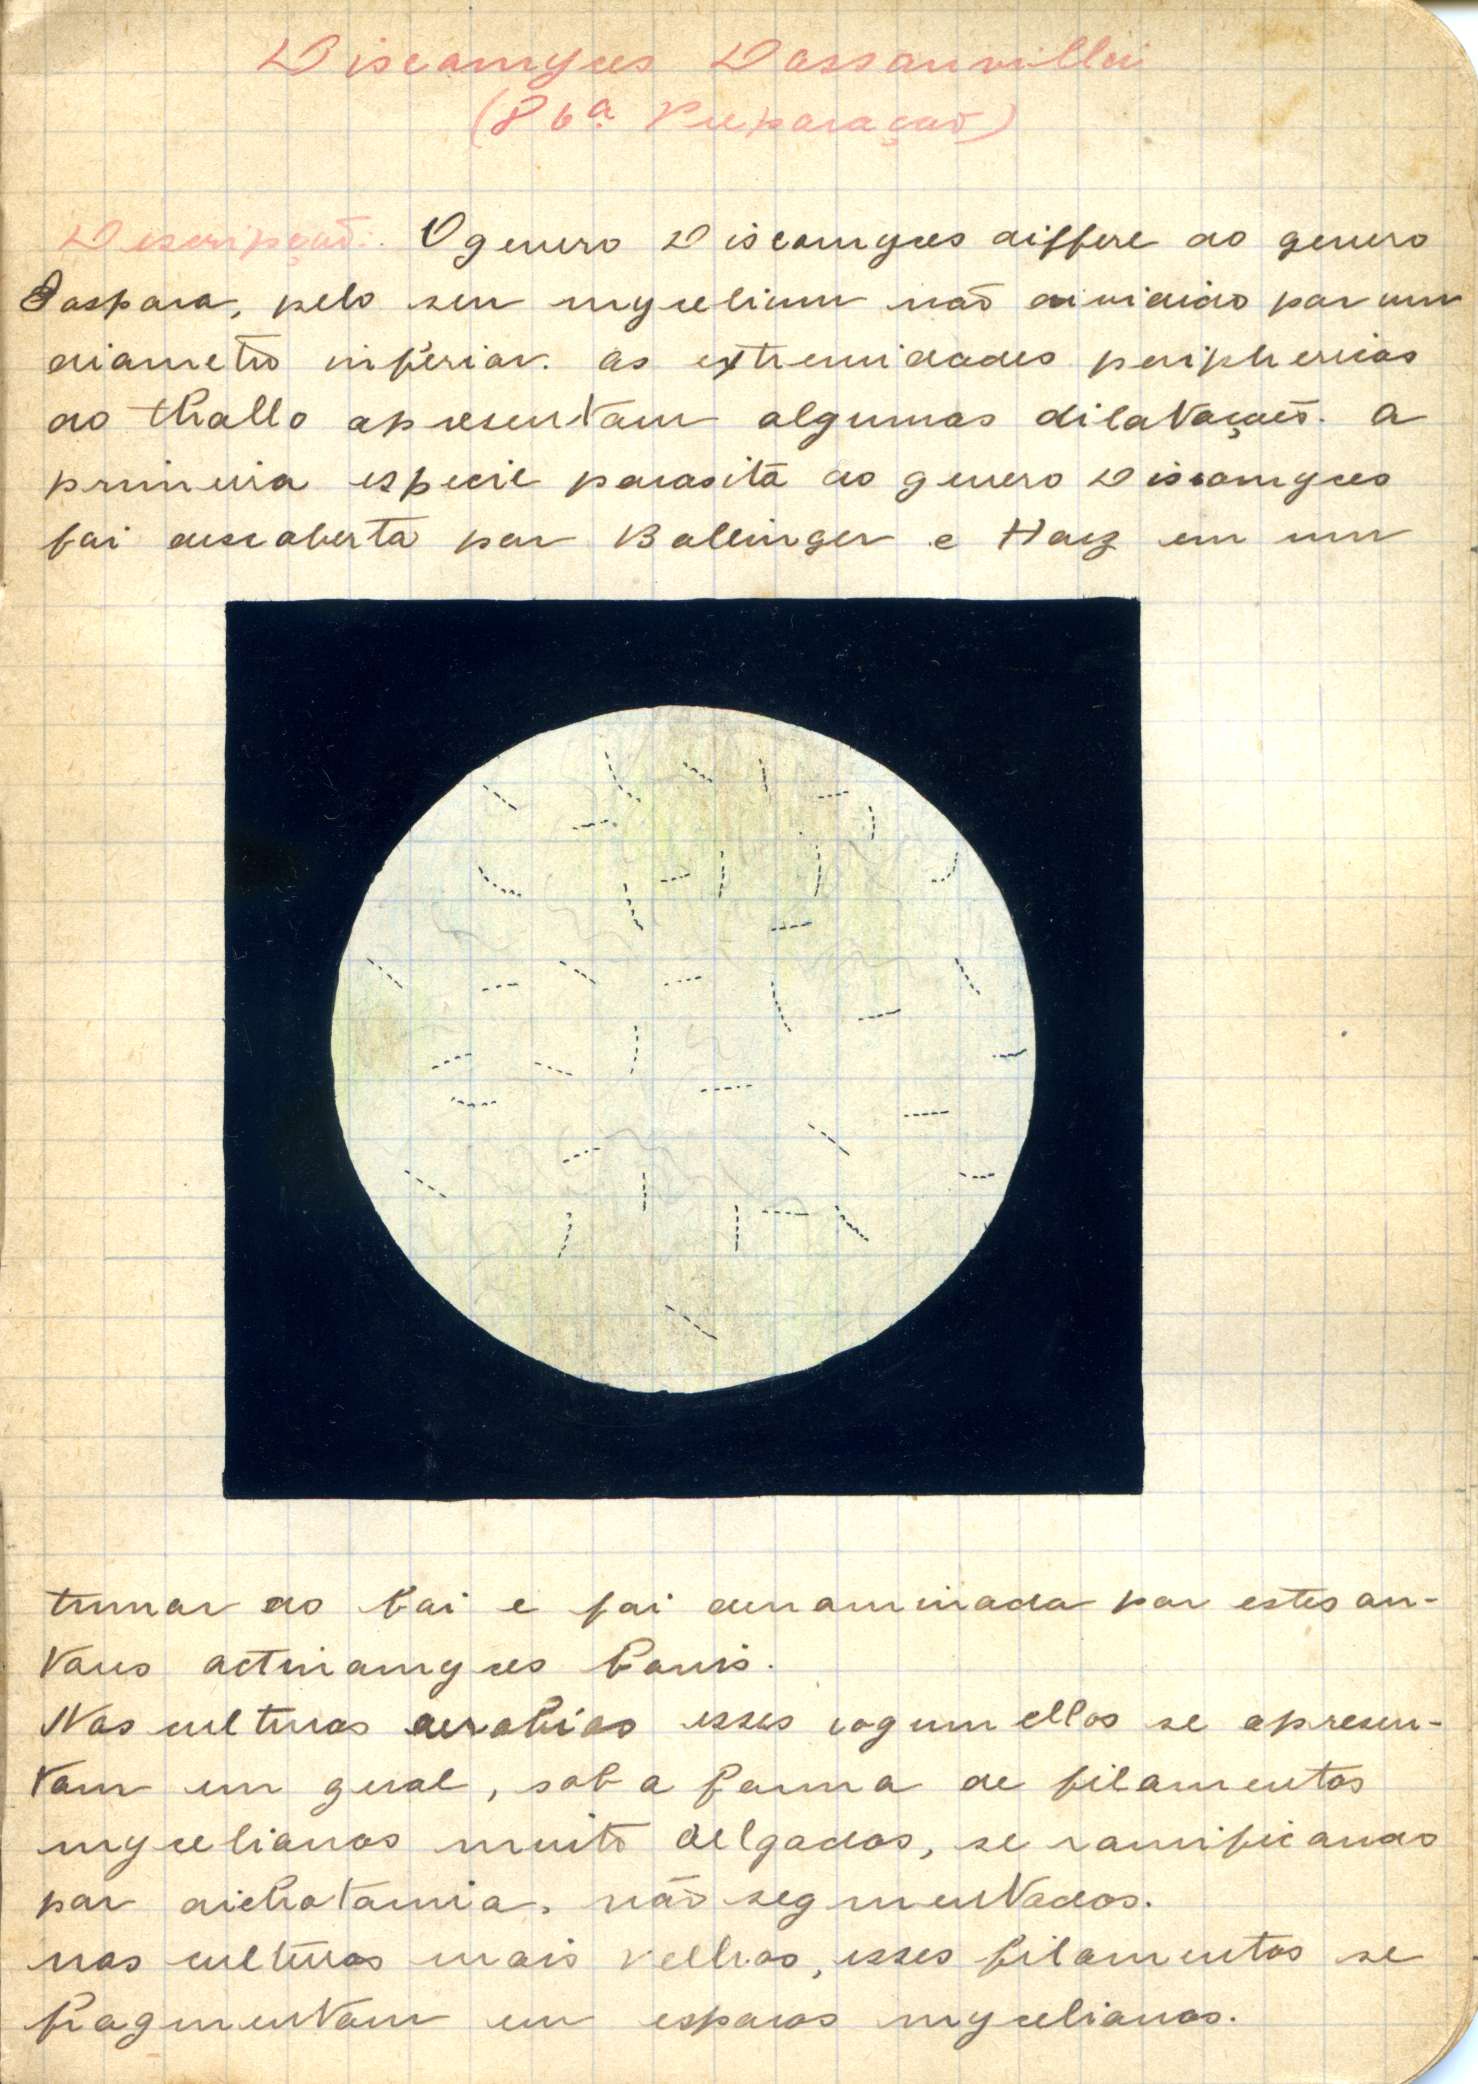 Discomyces Dassonvillei
(86ª Preparação)
Descripção: O genero Discomyces differe do genero
Oospora, pelo seu mycelium não dividido por um
diametro inferior. as extremidades periphericas
do thallo apresentam algumas dilatações. a
primeira especie parasita do genero Discomyces
foi descoberta por Bollinger e Harz em um
tumor do boi e foi denominada por estes au-
tores actinomyces bovis.
Nas culturas aerobias esses cogumellos se apresen-
tam em geral, sob a forma de filamentos
mycelianos muito delgados, se ramificando
por dichotomia, não segmentados.
nas culturas mais velhas, esses filamentos se
fragmentam em esporos mycelianos.